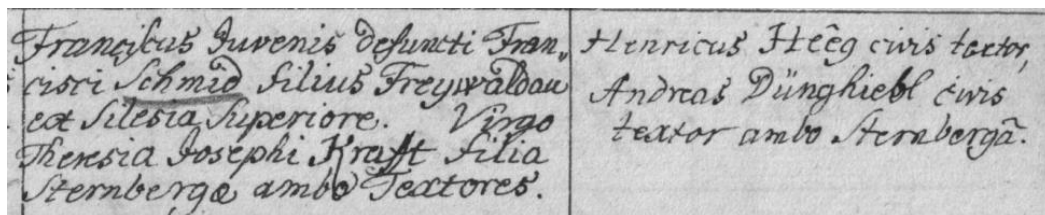 Franciscus Juvenis defuncti Fran„
cisci Schmid filius Freywaldau
ex Silesia Superiore. Virgo
Theresia Josephi Krafft filia
Sternbergæ ambo Textores.
Henricus Heêg civis textor,
Andreas Dünghiebl civis
textor ambo Sternbergâ.